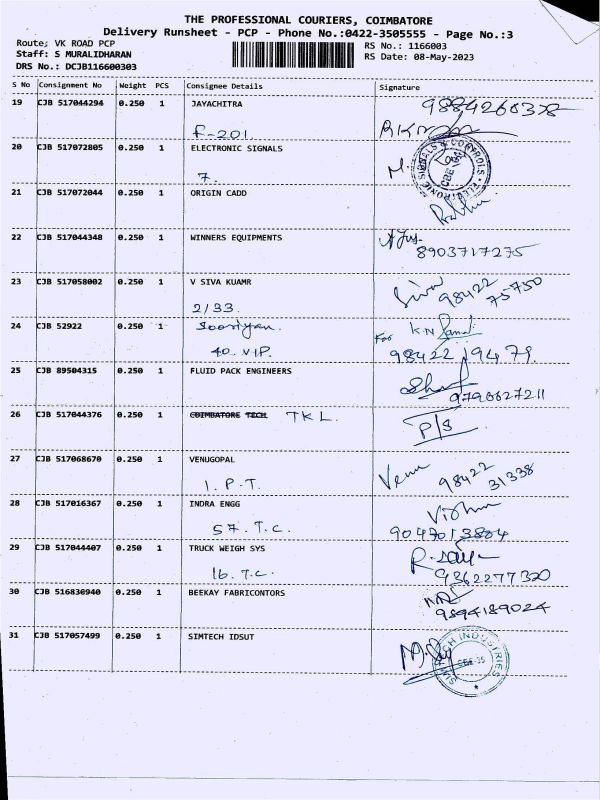 THE PROFESSIONAL COURIERS, COIMBATORE
Delivery Runsheet - PCP - Phone No.:0422-3505555 - Page No.:3
Route; VK ROAD PCP
Staff: S MURALIDHARAN
DRS No.: DCJB116600303
RS No.: 1166003
RS Date: 08-May-2023
S No Consignment No Weight PCS Consignee Details Signature
19 CJB 517044294 0.250 1 JAYACHITRA 9884266378
F-201.
20 CJB 517072805 0.250 1 ELECTRONIC SIGNALS
7.
21 CJB 517072044 0.250 1 ORIGIN CADD
22 CJB 517044348 0.250 1 WINNERS EQUIPMENTS
8903717275
23 CJB 517058002 0.250 1 V SIVA KUAMR Siva 98422 75750
2/33.
24 CJB 52922 0.250 1 Sooriyan. For K.N
40. VIP. 98422 19479.
25 CJB 89504315 0.250 1 FLUID PACK ENGINEERS
9790627211
26 CJB 517044376 0.250 1 COIMBATORE TECH TKL. P/S
27 CJB 517068670 0.250 1 VENUGOPAL Venu 98422 31338
1. P.T.
28 CJB 517016367 0.250 1 INDRA ENGG Vishnu
57. T.C. 9047013804
29 CJB 517044407 0.250 1 TRUCK WEIGH SYS
16. T.C. 9362277320
30 CJB 516830940 0.250 1 BEEKAY FABRICONTORS
9894189024
31 CJB 517057499 0.250 1 SIMTECH IDSUT